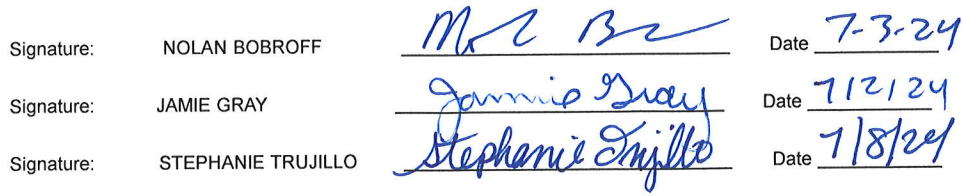 Signature: NOLAN BOBROFF Date 7-3-24
Signature: JAMIE GRAY Jammie Gray Date 7/2/24
Signature: STEPHANIE TRUJILLO Stephanie Trujillo Date 7/8/24